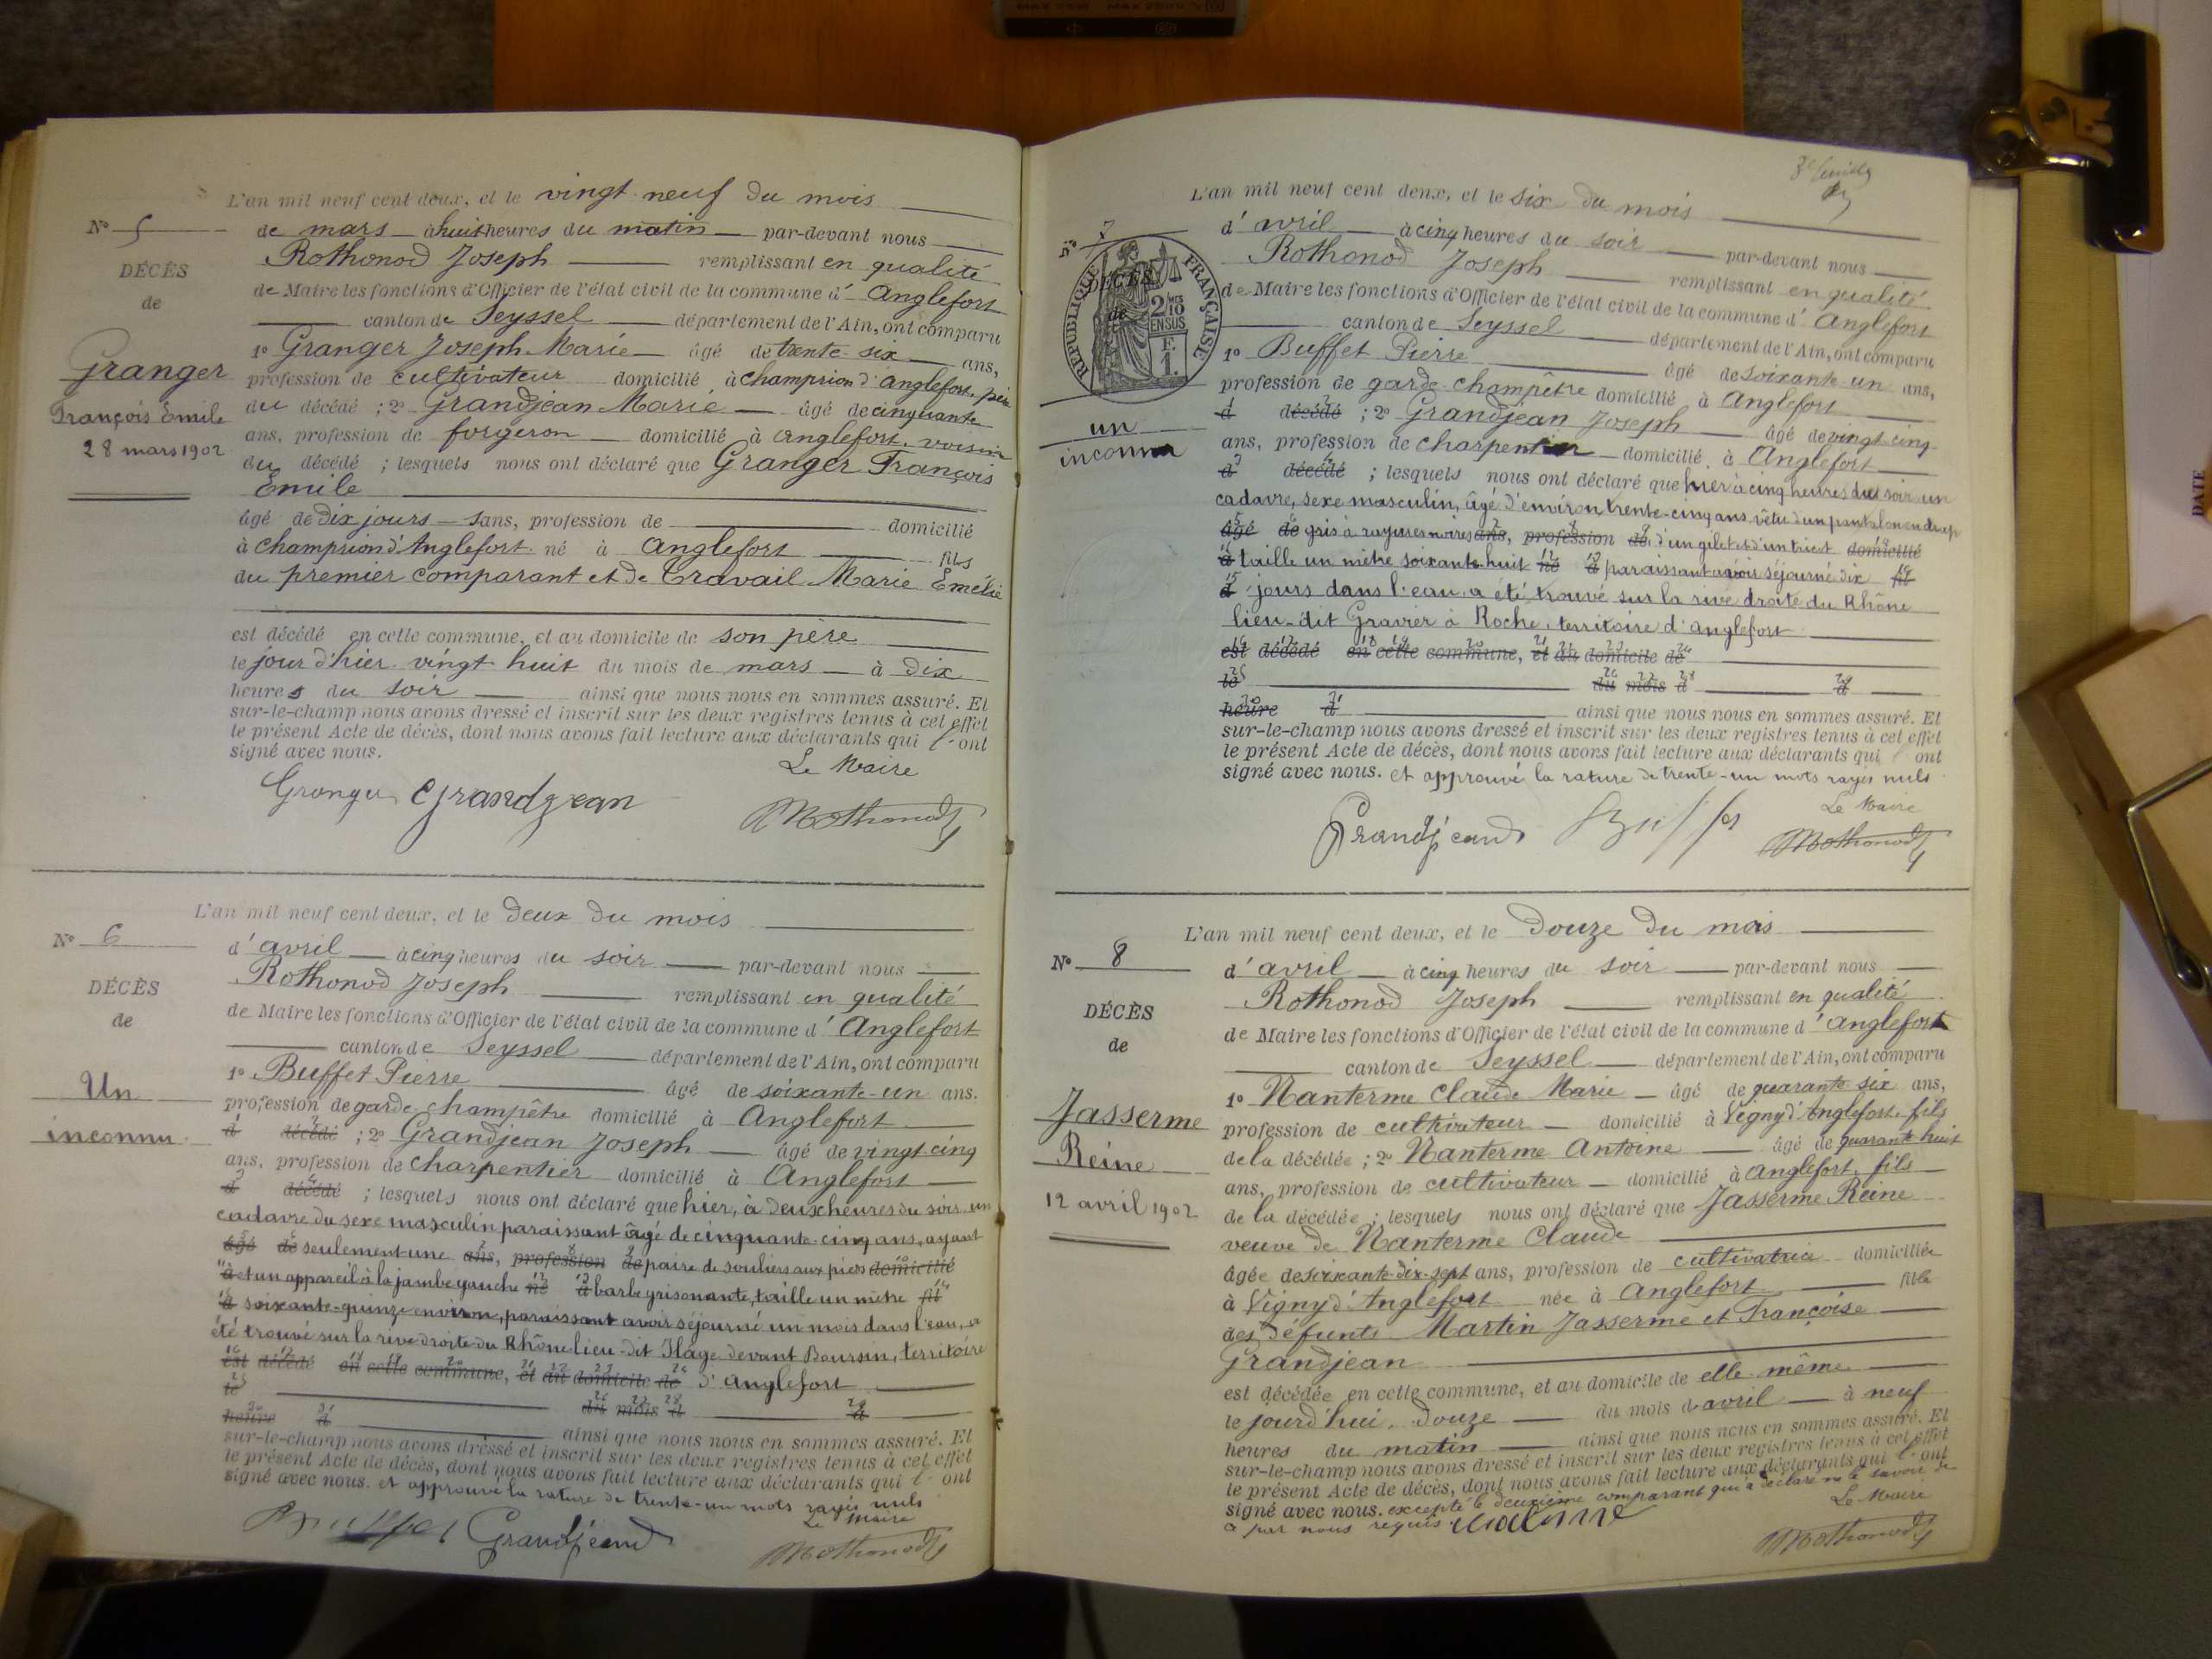 L'an mil neuf cent deux, et le vingt neuf du mois
N° 5
de mars à huit heures du matin par-devant nous
Rothonod Joseph remplissant en qualité
DÉCÈS
de Maire les fonctions d'Officier de l'état civil de la commune d' Anglefort
de
canton de Seyssel département de l'Ain, ont comparu
1° Granger Joseph Marie âgé de trente-six ans,
Granger
profession de cultivateur domicilié à Champrion d'Anglefort, père
François Emile
du décédé ; 2° Grandjean Marie âgé de cinquante
28 mars 1902
ans, profession de forgeron domicilié à Anglefort, voisin
du décédé ; lesquels nous ont déclaré que Granger François
Emile
âgé de dix jours sans, profession de domicilié
à Champrion d'Anglefort né à Anglefort fils
du premier comparant et de Travail Marie Emélie
est décédé en cette commune, et au domicile de son père
le jour d'hier vingt huit du mois de mars à dix
heures du soir ainsi que nous nous en sommes assuré. Et
sur-le-champ nous avons dressé et inscrit sur les deux registres tenus à cet effet
le présent Acte de décès, dont nous avons fait lecture aux déclarants qui l'ont
signé avec nous.
Le Maire
Granger Grandjean Rothonod
L'an mil neuf cent deux, et le deux du mois
N° 6
d'avril à cinq heures du soir par-devant nous
Rothonod Joseph remplissant en qualité
DÉCÈS
de Maire les fonctions d'Officier de l'état civil de la commune d' Anglefort
de
canton de Seyssel département de l'Ain, ont comparu
1° Buffet Pierre âgé de soixante-un ans.
Un
profession de garde champêtre domicilié à Anglefort
inconnu
d décédé ; 2° Grandjean Joseph âgé de vingt cinq
ans, profession de charpentier domicilié à Anglefort
d décédé ; lesquels nous ont déclaré que hier, à deux heures du soir, un
cadavre du sexe masculin paraissant âgé de cinquante-cinq ans, ayant
âgé de seulement une ans, profession de paire de souliers aux pieds domicilié
à et un appareil à la jambe gauche né à barbe grisonante, taille un mètre fil
d soixante-quinze environ, paraissant avoir séjourné un mois dans l'eau, a
été trouvé sur la rive droite du Rhône lieu-dit Ilage devant Boursin, territoire
est décédé en cette commune, et au domicile de d'Anglefort
le du mois d à
heure d ainsi que nous nous en sommes assuré. Et
sur-le-champ nous avons dressé et inscrit sur les deux registres tenus à cet effet
le présent Acte de décès, dont nous avons fait lecture aux déclarants qui l'ont
signé avec nous. et approuvé la rature de trente-un mots rayés nuls
Le Maire
Buffet Grandjean Rothonod
L'an mil neuf cent deux, et le six du mois
N° 7
d'avril à cinq heures du soir par-devant nous
Rothonod Joseph remplissant en qualité
DÉCÈS
de
RÉPUBLIQUE FRANÇAISE
2/10 EN SUS
F. 1.
de Maire les fonctions d'Officier de l'état civil de la commune d' Anglefort
canton de Seyssel département de l'Ain, ont comparu
1° Buffet Pierre âgé de soixante-un ans,
profession de garde-champêtre domicilié à Anglefort
un
inconnu
d décédé ; 2° Grandjean Joseph âgé de vingt-cinq
ans, profession de charpentier domicilié à Anglefort
d décédé ; lesquels nous ont déclaré que hier à cinq heures du soir un
cadavre, sexe masculin, âgé d'environ trente-cinq ans, vêtu d'un pantalon en drap
âgé de gris à rayures noires ans, profession de, d'un gilet et d'un tricot domicilié
à taille un mètre soixante-huit né à paraissant avoir séjourné dix fil
d jours dans l'eau, a été trouvé sur la rive droite du Rhône
lieu-dit Gravier à Roche, territoire d'Anglefort
est décédé en cette commune, et au domicile de
le du mois d à
heure d ainsi que nous nous en sommes assuré. Et
sur-le-champ nous avons dressé et inscrit sur les deux registres tenus à cet effet
le présent Acte de décès, dont nous avons fait lecture aux déclarants qui l'ont
signé avec nous. et approuvé la rature de trente-un mots rayés nuls
Le Maire
Grandjean Buffet Rothonod
L'an mil neuf cent deux, et le Douze du mois
N° 8
d'avril à cinq heures du soir par-devant nous
Rothonod Joseph remplissant en qualité
DÉCÈS
de Maire les fonctions d'Officier de l'état civil de la commune d' Anglefort
de
canton de Seyssel département de l'Ain, ont comparu
1° Nanterme Claude Marie âgé de quarante six ans,
Jasserme
profession de cultivateur domicilié à Vigny d'Anglefort, fils
Reine
de la décédée ; 2° Nanterme Antoine âgé de quarante huit
ans, profession de cultivateur domicilié à Anglefort, fils
12 avril 1902
de la décédée ; lesquels nous ont déclaré que Jasserme Reine
veuve de Nanterme Claude
âgée de soixante-dix-sept ans, profession de cultivatrice domiciliée
à Vigny d'Anglefort née à Anglefort fille
des défunts Martin Jasserme et Françoise
Grandjean
est décédée en cette commune, et au domicile de elle même
le jourd'hui, douze du mois d'avril à neuf
heures du matin ainsi que nous nous en sommes assuré. Et
sur-le-champ nous avons dressé et inscrit sur les deux registres tenus à cet effet
le présent Acte de décès, dont nous avons fait lecture aux déclarants qui l'ont
signé avec nous. excepté le deuxième comparant qui a déclaré ne le savoir de
a par nous requis.
Le Maire
Rothonod
DATE